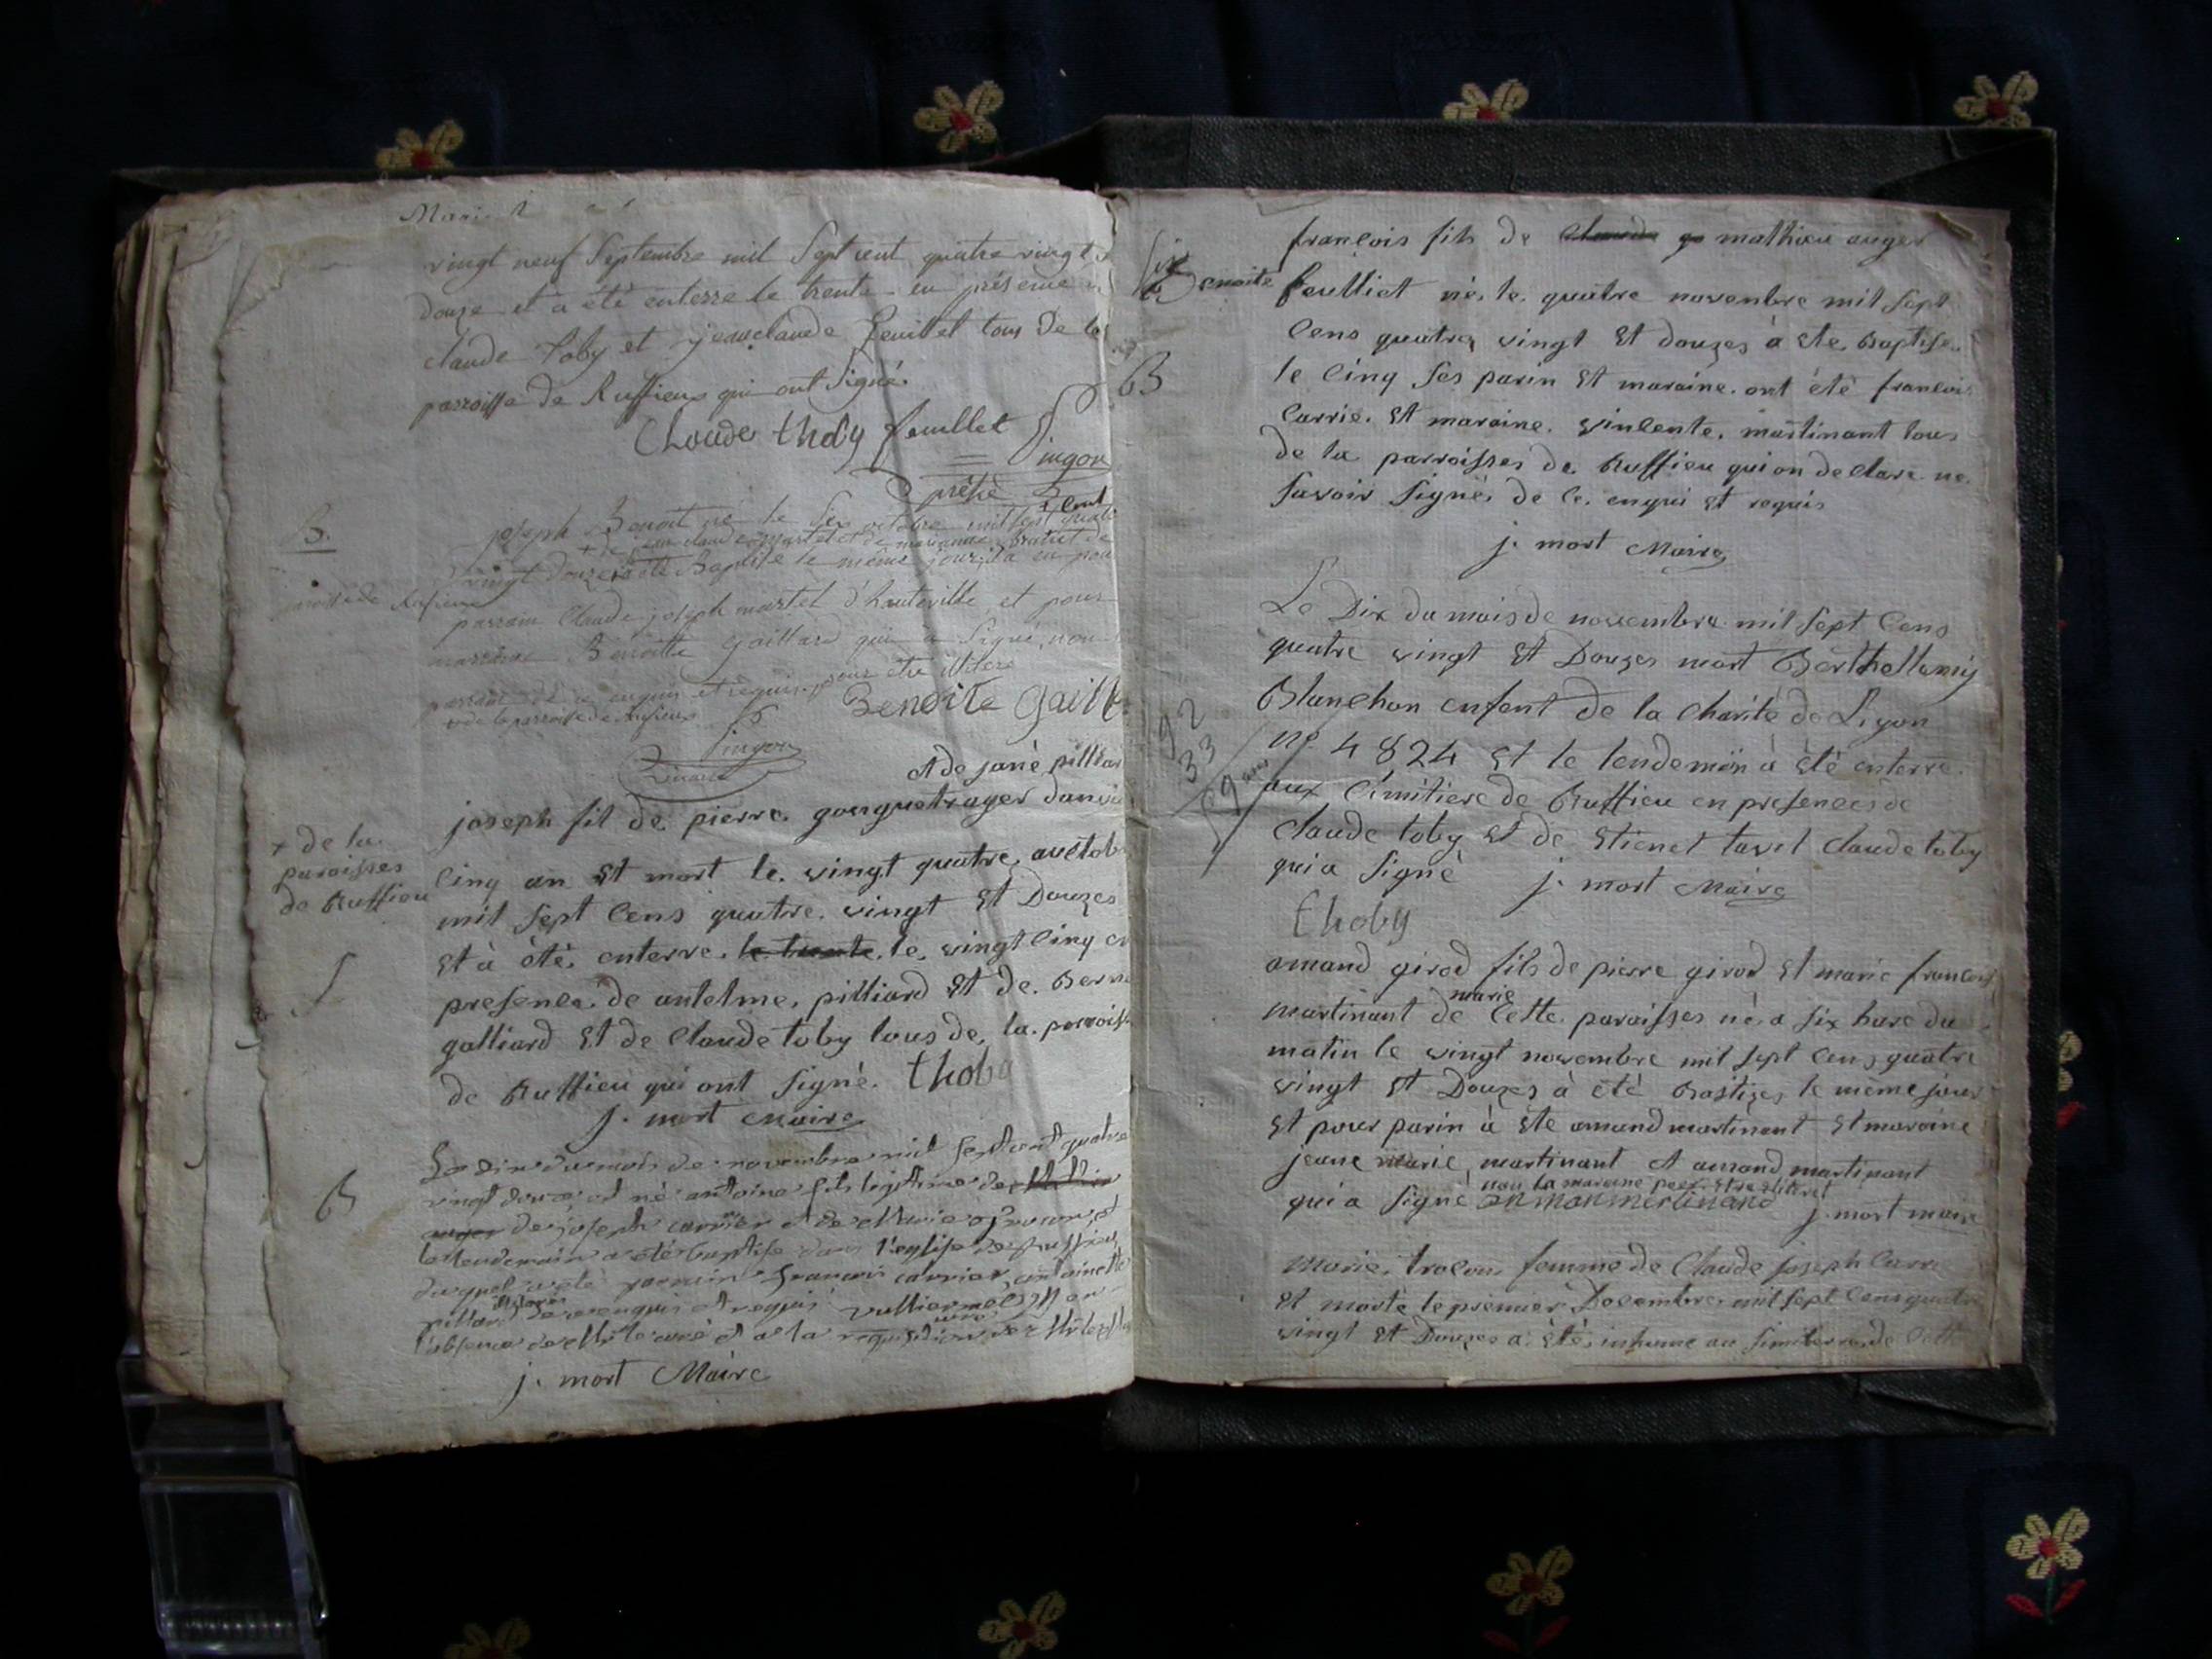 vingt neuf Septembre mil Sept cent quatre vingt
douze et a été enterré le trente en présence
claude toby et jeanclaude feuillet tous de la
parroisse de Ruffieux qui ont Signé.
Claude thoby feuillet Singon
prêtre
B.
joseph Benoit né le Six octobre mil sept cent quatre
+ de jean claude martel et de marianne de
vingt douze a été Baptisé le même jour, il a eu pour
parrain Claude joseph martel d'hauteville, et pour
marraine Benoitte gaillard qui a Signé, non
parrain de ce enquis et requis pour être illitere
+ de la parroisse de Rufieux
Benoite gaill
Singon
et de jané pilliar
joseph fil de pierre
+ de la
paroisses
de Ruffieu
cinq an et mort le. vingt quatre, auctob
mil sept Cens quatre. vingt Et Douzes
Et à été. enterre. le trente. le. vingt cinq en
presence. de antelme. pilliard Et de. Bern
galliard Et de Claude toby tous de. la. parroiss
de Ruffieu qui ont Signé. thoby
j. mort Maire
B
Le dix du mois de novembre mil sept cent quatre
vingt douze est né antoine fils légitime de
de joseph carrier et de Marie
le lendemain a été baptisé dans l'église de Ruffieu
duquel a été parrain francois carrier, antoinette
pillard illiteres de ce enquis et requis vulliermoz en
l'absence de Mr le curé et a la requisition
j. mort Maire
francois fils de Claude mathieu auger
Benoite feulliet né. le. quatre novembre mil sept
Cens quatre vingt Et douzes à Ete. Baptise.
B
le Cinq Ses parin Et maraine. ont été francois
Carrie. Et maraine. vincente. martinant tous
de la parroisses de. Ruffieu qui on declare ne.
Savoir Signé, de Ce. enqui Et requis
j. mort Maire
Le Dix du mois de novembre mil sept Cens
quatre vingt Et Douzes mort Berthellemiy
Blanchon enfent de la Charité de Liyon
92
33
9 ans
no. 4824 Et le lendemain à été enterre.
aux Cimitiere de Ruffieu en presences de
Claude toby Et de Etienet tavel Claude toby
qui a Signé j. mort Maire
thoby
amand girod fils de pierre girod Et marie francois
martinant de marie Cette. paroisses né. a six hure du
matin le vingt novembre mil sept Cens quatre
vingt Et Douzes à été Bastizes le même jour
Et pour parin à Ete amand martinant Et maraine
jeane marie, martinant et amand martinant
non la maraine pour Etre illiteret
qui a Signé anman mertinand j. mort maire
Marie. tracon femme de Claude Joseph Carri
Et morte le premier Decembre. mil sept Cens quatre
vingt Et Douzes a. été. inhume au Simitere. de Cett